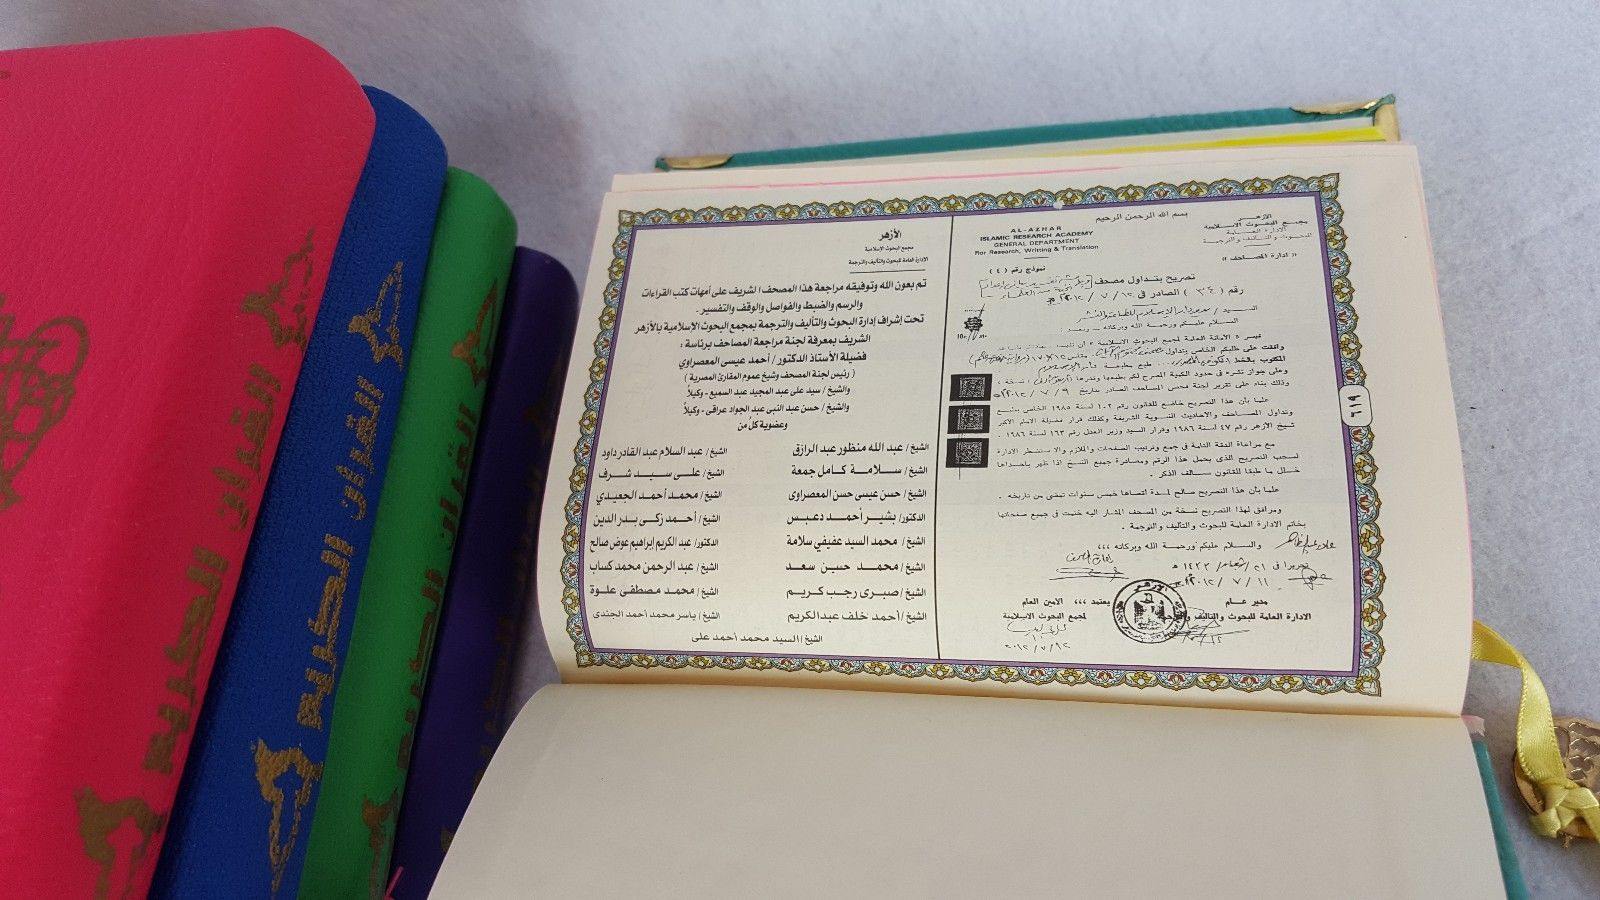 القرآن الكريم
القرآن الكريم
القرآن الكريم
بسم الله الرحمن الرحيم
الأزهــر
مجمع البحوث الاسلامية
الادارة العامة
للبحوث والتأليف والترجمة
« ادارة المصاحف »
AL-AZHAR
ISLAMIC RESEARCH ACADEMY
GENERAL DEPARTMENT
For Research, Writting & Translation
نموذج رقم ( ٤ )
تصريح بتداول مصحف
رقم ( ٣٤ ) الصادر فى ١٢ / ٧ / ٢٠١٢ م
السيد /
السلام عليكم ورحمة الله وبركاته ــ وبعد :
الامانة العامة لمجمع البحوث الاسلامية
وافقت على طلبكم الخاص بتداول
المكتوب بالخط
وعلى جواز نشره فى حدود الكمية المصرح لكم بطبعها وقدرها نسخة ،
وذلك بناء على تقرير لجنة فحص المصاحف الصادر بتاريخ ٩ / ٧ / ٢٠١٢
علما بأن هذا التصريح خاضع للقانون رقم ١٠٢ لسنة ١٩٨٥ الخاص
وتداول المصاحف والاحاديث النبوية الشريفة وكذلك قرار فضيلة الامام الاكبر
شيخ الأزهر رقم ٤٧ لسنة ١٩٨٦ وقرار السيد وزير العدل رقم ١٦٣ لسنة ١٩٨٦ .
مع مراعاة الدقة التامة فى جمع وترتيب الصفحات والملازم والا ستضطر الادارة
لسحب التصريح الذى يحمل هذا الرقم ومصادرة جميع النسخ اذا ظهر باحداها
خلل ما طبقا للقانون سالف الذكر .
علما بأن هذا التصريح صالح لمدة أقصاها خمس سنوات تمضى من تاريخه .
ومرافق لهذا التصريح نسخة من المصحف المشار اليه ختمت فى جميع صفحاتها
بخاتم الادارة العامة للبحوث والتأليف والترجمة .
والسلام عليكم ورحمة الله وبركاته ،،،
تحريرا فى ٢١ / شعبان / ١٤٣٣ هـ
١١ / ٧ / ٢٠١٢ م
مدير عــام
الادارة العامة للبحوث والتأليف والترجمة
يعتمد ،،، الامين العام
لمجمع البحوث الاسلامية
٦١٩
الأزهر
مجمع البحوث الإسلامية
الإدارة العامة للبحوث والتأليف والترجمة
تم بعون الله وتوفيقه مراجعة هذا المصحف الشريف على أمهات كتب القراءات
والرسم والضبط والفواصل والوقف والتفسير .
تحت إشراف إدارة البحوث والتأليف والترجمة بمجمع البحوث الإسلامية بالأزهر
الشريف بمعرفة لجنة مراجعة المصاحف برئاسة :
فضيلة الأستاذ الدكتور / أحمد عيسى المعصراوي
( رئيس لجنة المصحف وشيخ عموم المقارئ المصرية )
والشيخ / سيد على عبد المجيد عبد السميع - وكيلاً
والشيخ / حسن عبد النبى عبد الجواد عراقى - وكيلاً
وعضوية كل من
الشيخ / عبد الله منظور عبد الرازق
الشيخ / عبد السلام عبد القادر داود
الشيخ / سلامة كامل جمعة
الشيخ / على سيد شرف
الشيخ / حسن عيسى حسن المعصراوى
الشيخ / محمد أحمد الجعيدي
الدكتور / بشير أحمد دعبس
الشيخ / أحمد زكى بدر الدين
الشيخ / محمد السيد عفيفي سلامة
الدكتور / عبد الكريم إبراهيم عوض صالح
الشيخ / محمد حسين سعد
الشيخ / عبد الرحمن محمد كساب
الشيخ / صبرى رجب كريم
الشيخ / محمد مصطفى علوة
الشيخ / أحمد خلف عبد الكريم
الشيخ / ياسر محمد أحمد الجندى
الشيخ / السيد محمد أحمد على